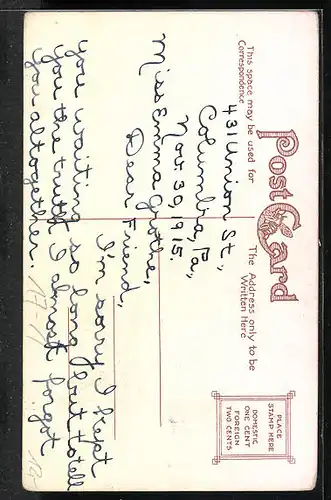 Post Card
This space may be used for
Correspondence
The Address only to be
Written Here
PLACE
STAMP HERE
DOMESTIC
ONE CENT
FOREIGN
TWO CENTS
431 Union St.,
Columbia, Pa.,
Nov. 30, 1915.
Miss Emma Grothe,
Dear Friend,
I'm sorry I kept
you waiting so long but to tell
you the truth I almost forgot
you altogether.